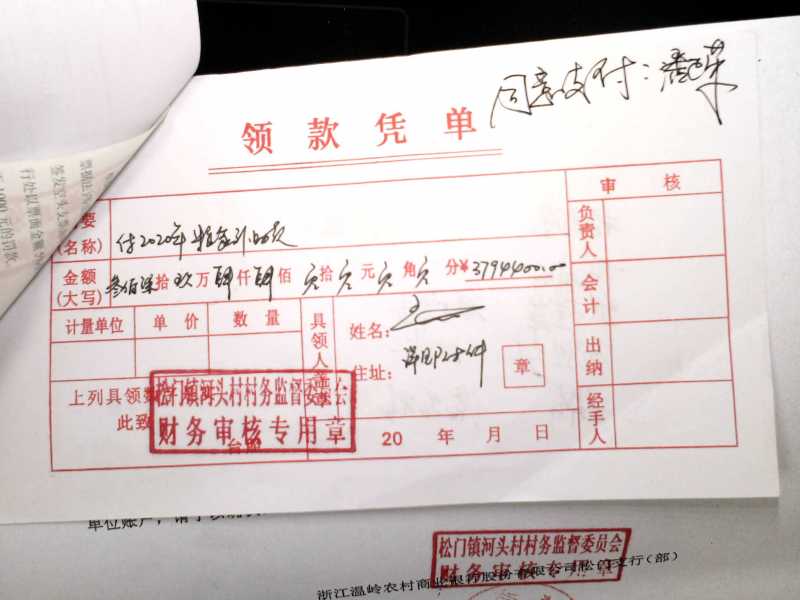 同意支付:
领款凭单
要
(名称) 付2020年
审核
金额
(大写) 叁佰柒拾玖万肆仟肆佰元拾元元角元分¥3794400.00
计量单位 单价 数量
具领人签章
姓名:
住址: 详见附件
章
上列具领数
此致
台照
20 年 月 日
负责人
会计
出纳
经手人
松门镇河头村村务监督委员会
财务审核专用章
松门镇河头村村务监督委员会
财务审核专用章
单位账户,
浙江温岭农村商业银行股份有限公司松门支行(部)
签发空头支票
行处以票面金额5%
1000元的罚款